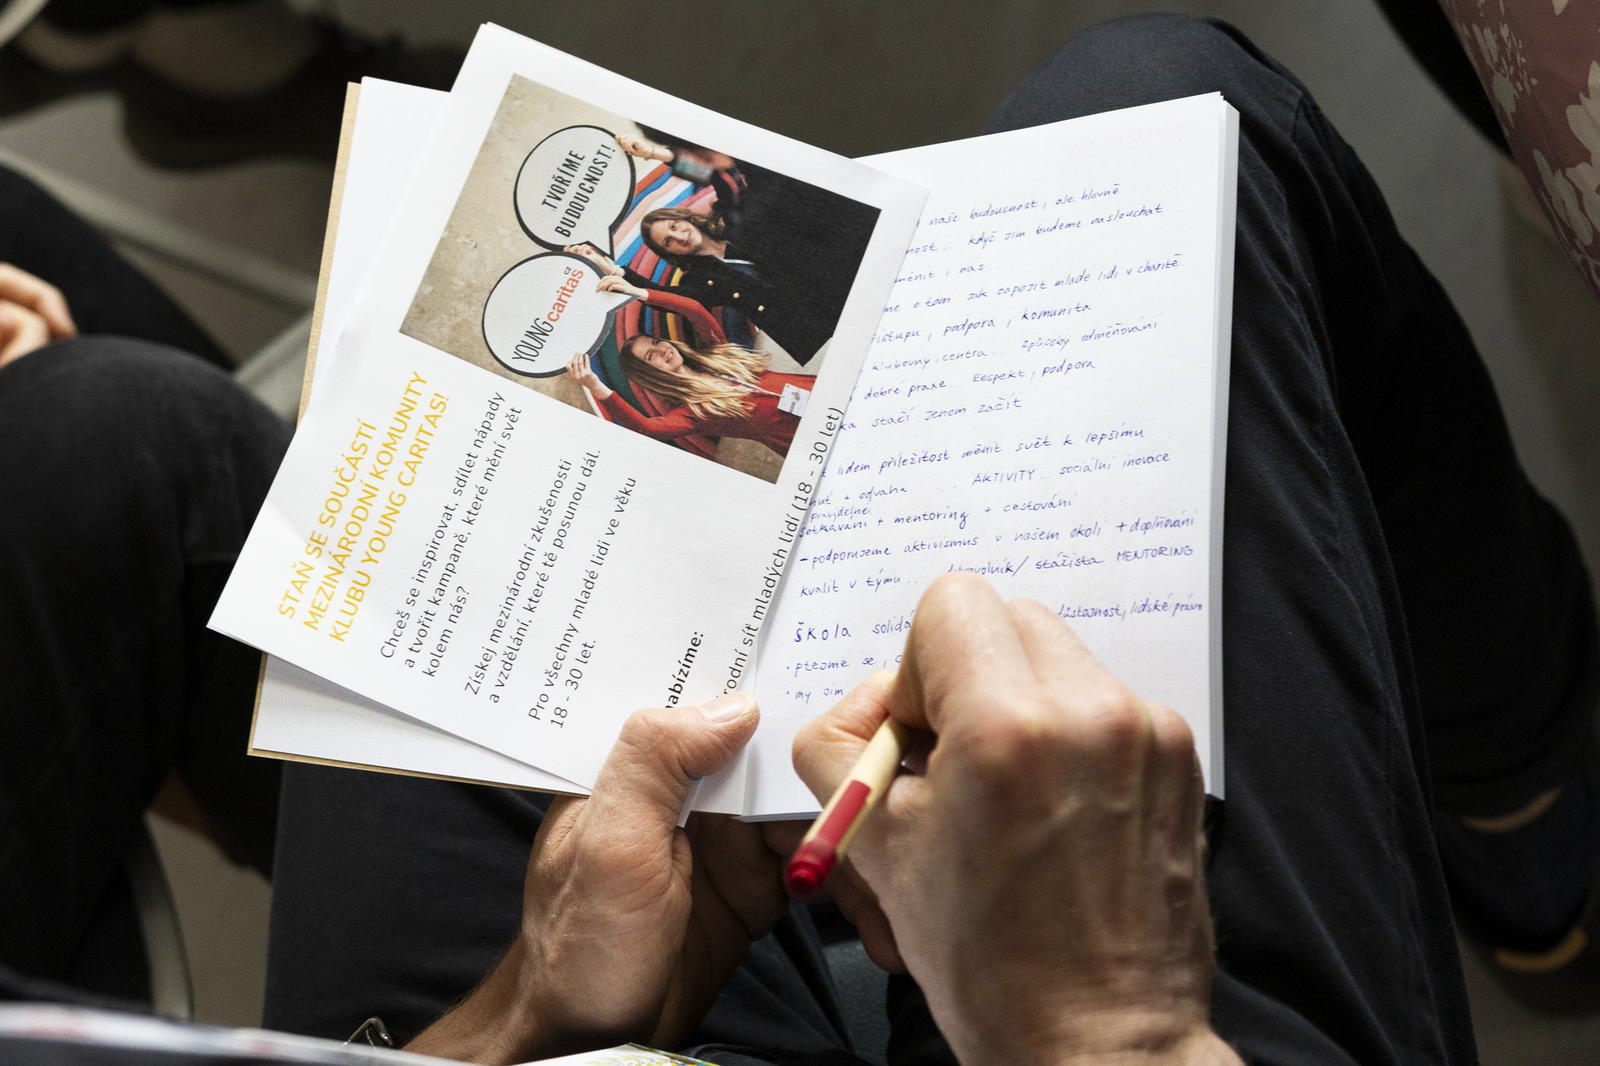 TVOŘÍME
BUDOUCNOST!
YOUNG caritas cz
STAŇ SE SOUČÁSTÍ
MEZINÁRODNÍ KOMUNITY
KLUBU YOUNG CARITAS!
Chceš se inspirovat, sdílet nápady
a tvořit kampaně, které mění svět
kolem nás?
Získej mezinárodní zkušenosti
a vzdělání, které tě posunou dál.
Pro všechny mladé lidi ve věku
18 - 30 let.
nabízíme:
rodní síť mladých lidí (18 - 30 let)
naše budoucnost, ale hlavně
nost .. když jim budeme naslouchat
měnit i nás.
me o tom jak zapojit mladé lidi v charitě.
ístupu, podpora, komunita
klubovny, centra... způsoby odměňování
dobré praxe... Respekt, podpora
ka stačí jenom začít
lidem příležitost měnit svět k lepšímu
+ odvaha ... AKTIVITY... sociální inovace
pravidelné
setkávání + mentoring + cestování
- podporujeme aktivismus v našem okolí + doplňování
kvalit v týmu ... dobrovolník / stážista MENTORING
Škola solidá důstojnost, lidské právo
• ptejme se,
• my jim